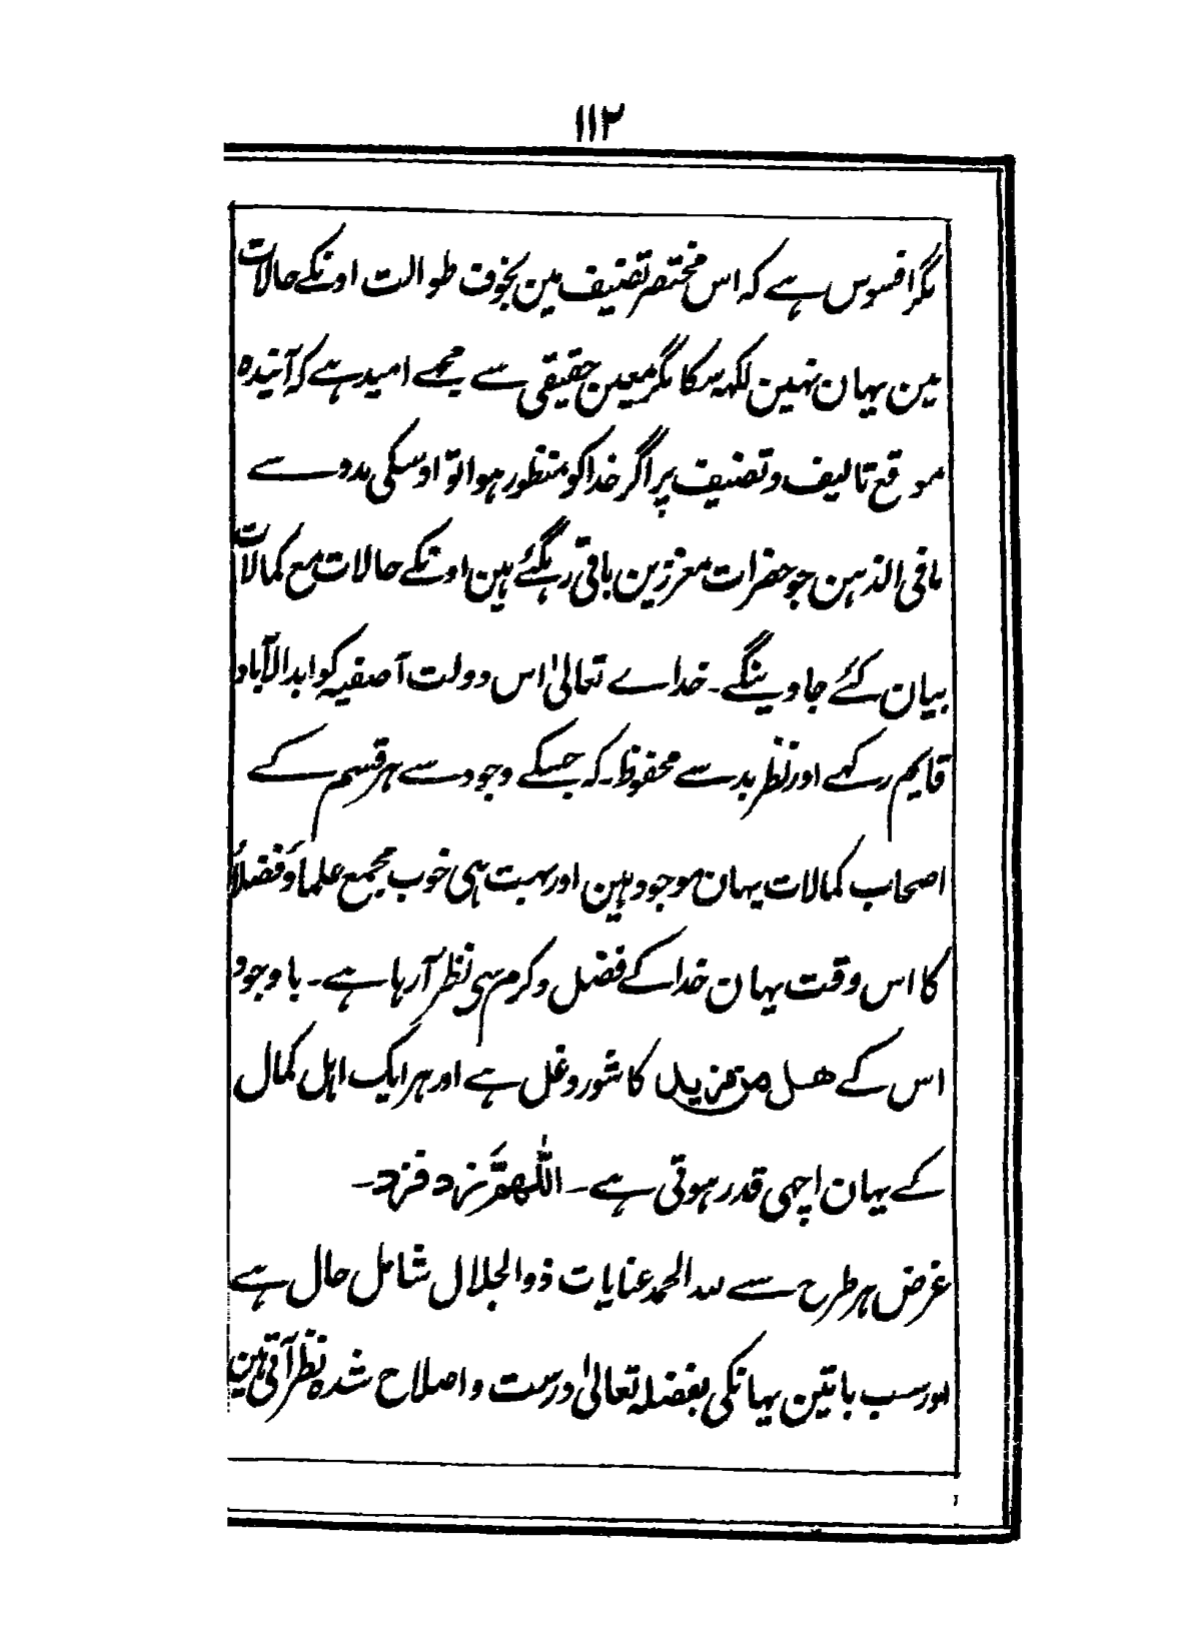 ۱۱۲
مگر افسوس ہے کہ اس مختصر تصنیف مین بخوف طوالت اونکے حالات
مین یہان نہین لکھ سکا مگر معین حقیقی سے مجھے امید ہے کہ آیندہ
موقع تالیف و تصنیف پر اگر خدا کو منظور ہوا تو اوسکی مدد سے
مافی الذہن جو حضرات معززین باقی رہگئے ہین اونکے حالات مع کمالات
بیان کئے جاوینگے۔ خداے تعالیٰ اس دولت آصفیہ کو ابدالآباد
قایم رکھے اور نظر بد سے محفوظ۔ کہ جسکے وجود سے ہر قسم کے
اصحاب کمالات یہان موجود ہین اور بہت ہی خوب مجمع علماؤ فضلاؤ
کا اس وقت یہان خدا کے فضل و کرم سی نظر آرہا ہے۔ باوجود
اس کے ھل من مزید کا شور و غل ہے اور ہر ایک اہل کمال
کے یہان اچھی قدر ہوتی ہے۔ اللّٰھمَّ زد فزد۔
غرض ہر طرح سے للہ الحمد عنایات ذوالجلال شامل حال ہے
اور سب باتین یہانکی بفضلہ تعالیٰ درست و اصلاح شدہ نظر آتی ہین